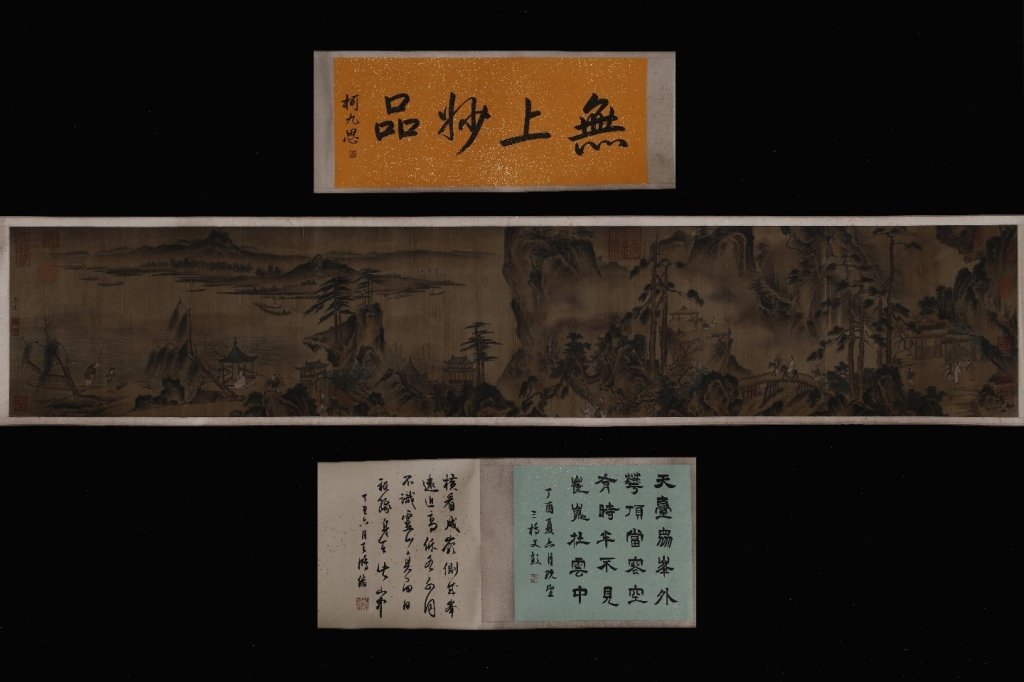 無上妙品
柯九思
天臺眾峯外
華頂當寒空
有時半不見
崔嵬在雲中
丁酉夏六月
三橋文彭
橫看成嶺側成峯
遠近高低各不同
不識廬山真面目
祗緣身在此山中
六月王鴻緒